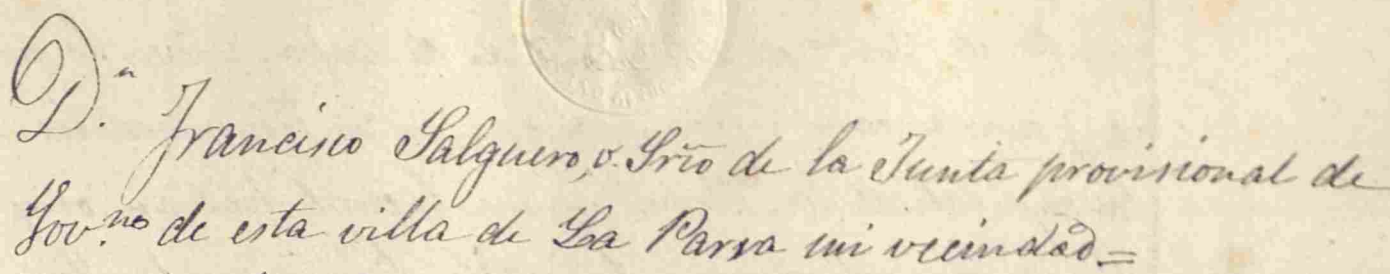 D.ⁿ Francisco Salguero, v. Srio de la Junta provisional de
Gov.no de esta villa de La Parra mi vecindad=